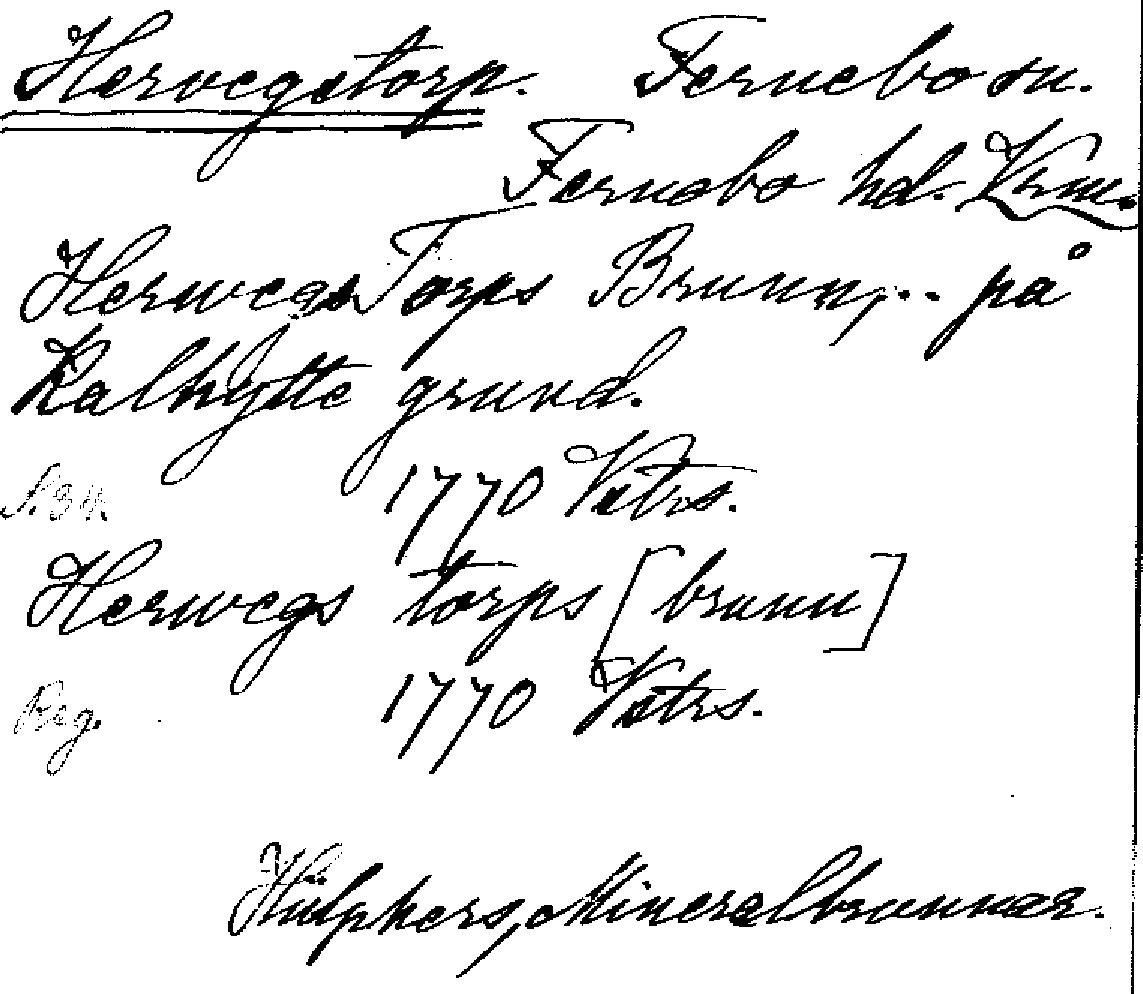 Hervegstorp. Fernebo sn.
Fernebo hd. Vrm.
Herwegs Torps Brunn, .. på
Kalhytte grund.
S. 34. 1770 Vstrs.
Herwegs torps [brunn]
Reg. 1770 Vstrs.
Hülphers, Mineralbrunnar.